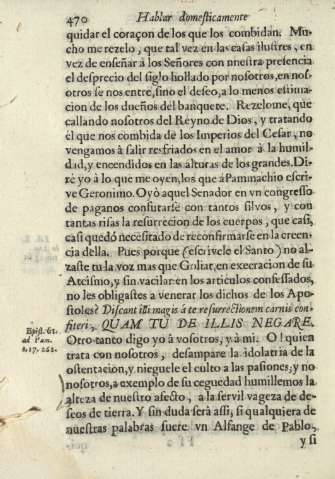 470 Hablar domesticamente
quidar el coraçon de los que los combidan. Mu-
cho me rezelo, que tal vez en las casas ilustres, en
vez de enseñar à los Señores con nuestra presencia
el desprecio del siglo hollado por nosotros, en nos-
otros se nos entre, sino el deseo, a lo menos estima-
cion de los dueños del banquete. Rezelome, que
callando nosotros del Reyno de Dios, y tratando
el que nos combida de los Imperios del Cesar, no
vengamos à salir resfriados en el amor à la humil-
dad, y encendidos en las alturas de los grandes. Di-
rè yo à lo que me oyen, los que à Pammachio escri-
ve Geronimo. Oyò aquel Senador en vn congresso
de paganos consutarse con tantos silvos, y con
tantas risas la resurrecion de los cuerpos, que casi,
casi quedò necesitado de reconfirmarse en la creen-
cia della. Pues porque (escrivele el Santo) no al-
zaste tu la voz mas que Goliat, en execracion de su
Ateismo, y sin vacilar en los articulos confessados,
no les obligastes à venerar los dichos de los Apo-
stoles? Discant illi magis à te resurrectionem carnis con-
fiteri, QUAM TU DE ILLIS NEGARE.
Epist. 61.
ad Pam.
Otro tanto digo yo à vosotros, y à mi. O! quien
trata con nosotros, desampare la idolatria de la
ostentacion, y nieguele el culto a las pasiones; y no
nosotros, a exemplo de su ceguedad humillemos la
alteza de nuestro afecto, a la servil vageza de de-
seos de tierra. Y sin duda serà assi, si qualquiera de
nuestras palabras fuere vn Alfange de Pablo,
y si